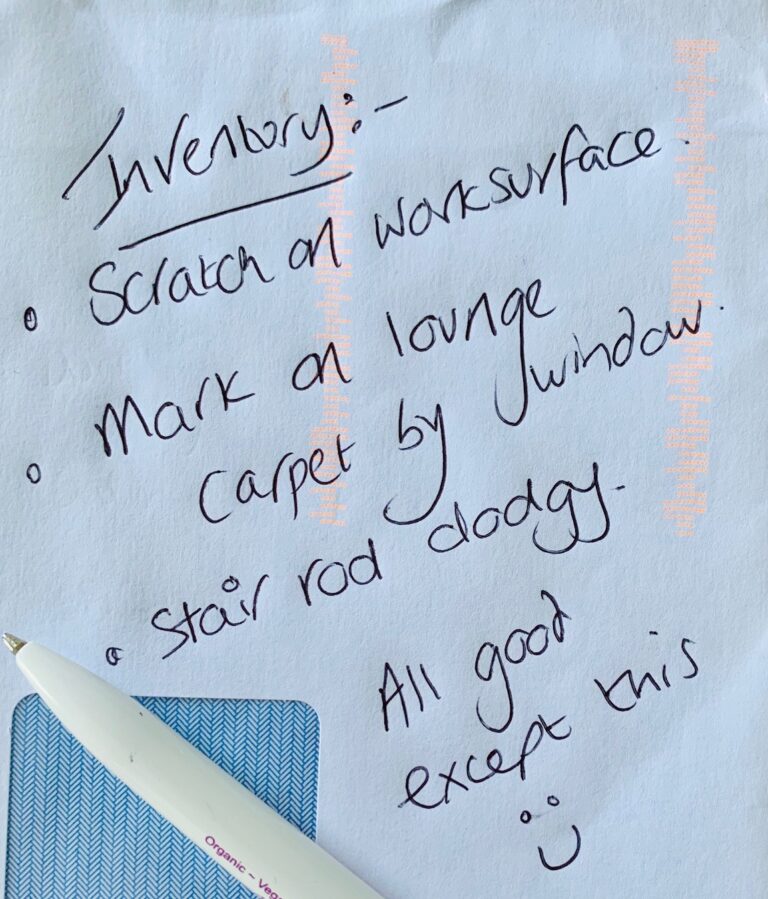 Inventory:-
Scratch on worksurface.
Mark on lounge
carpet by window.
Stair rod dodgy.
All good
except this
Organic - Veg